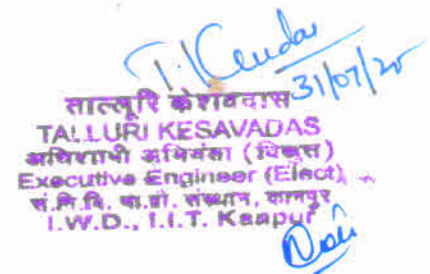 31/07/20
ताल्लूरि केशवदास
TALLURI KESAVADAS
अधिशाषी अभियंता (विद्युत)
Executive Engineer (Elect)
सं.नि.वि. भा.प्रौ. संस्थान, कानपुर
I.W.D., I.I.T. Kanpur